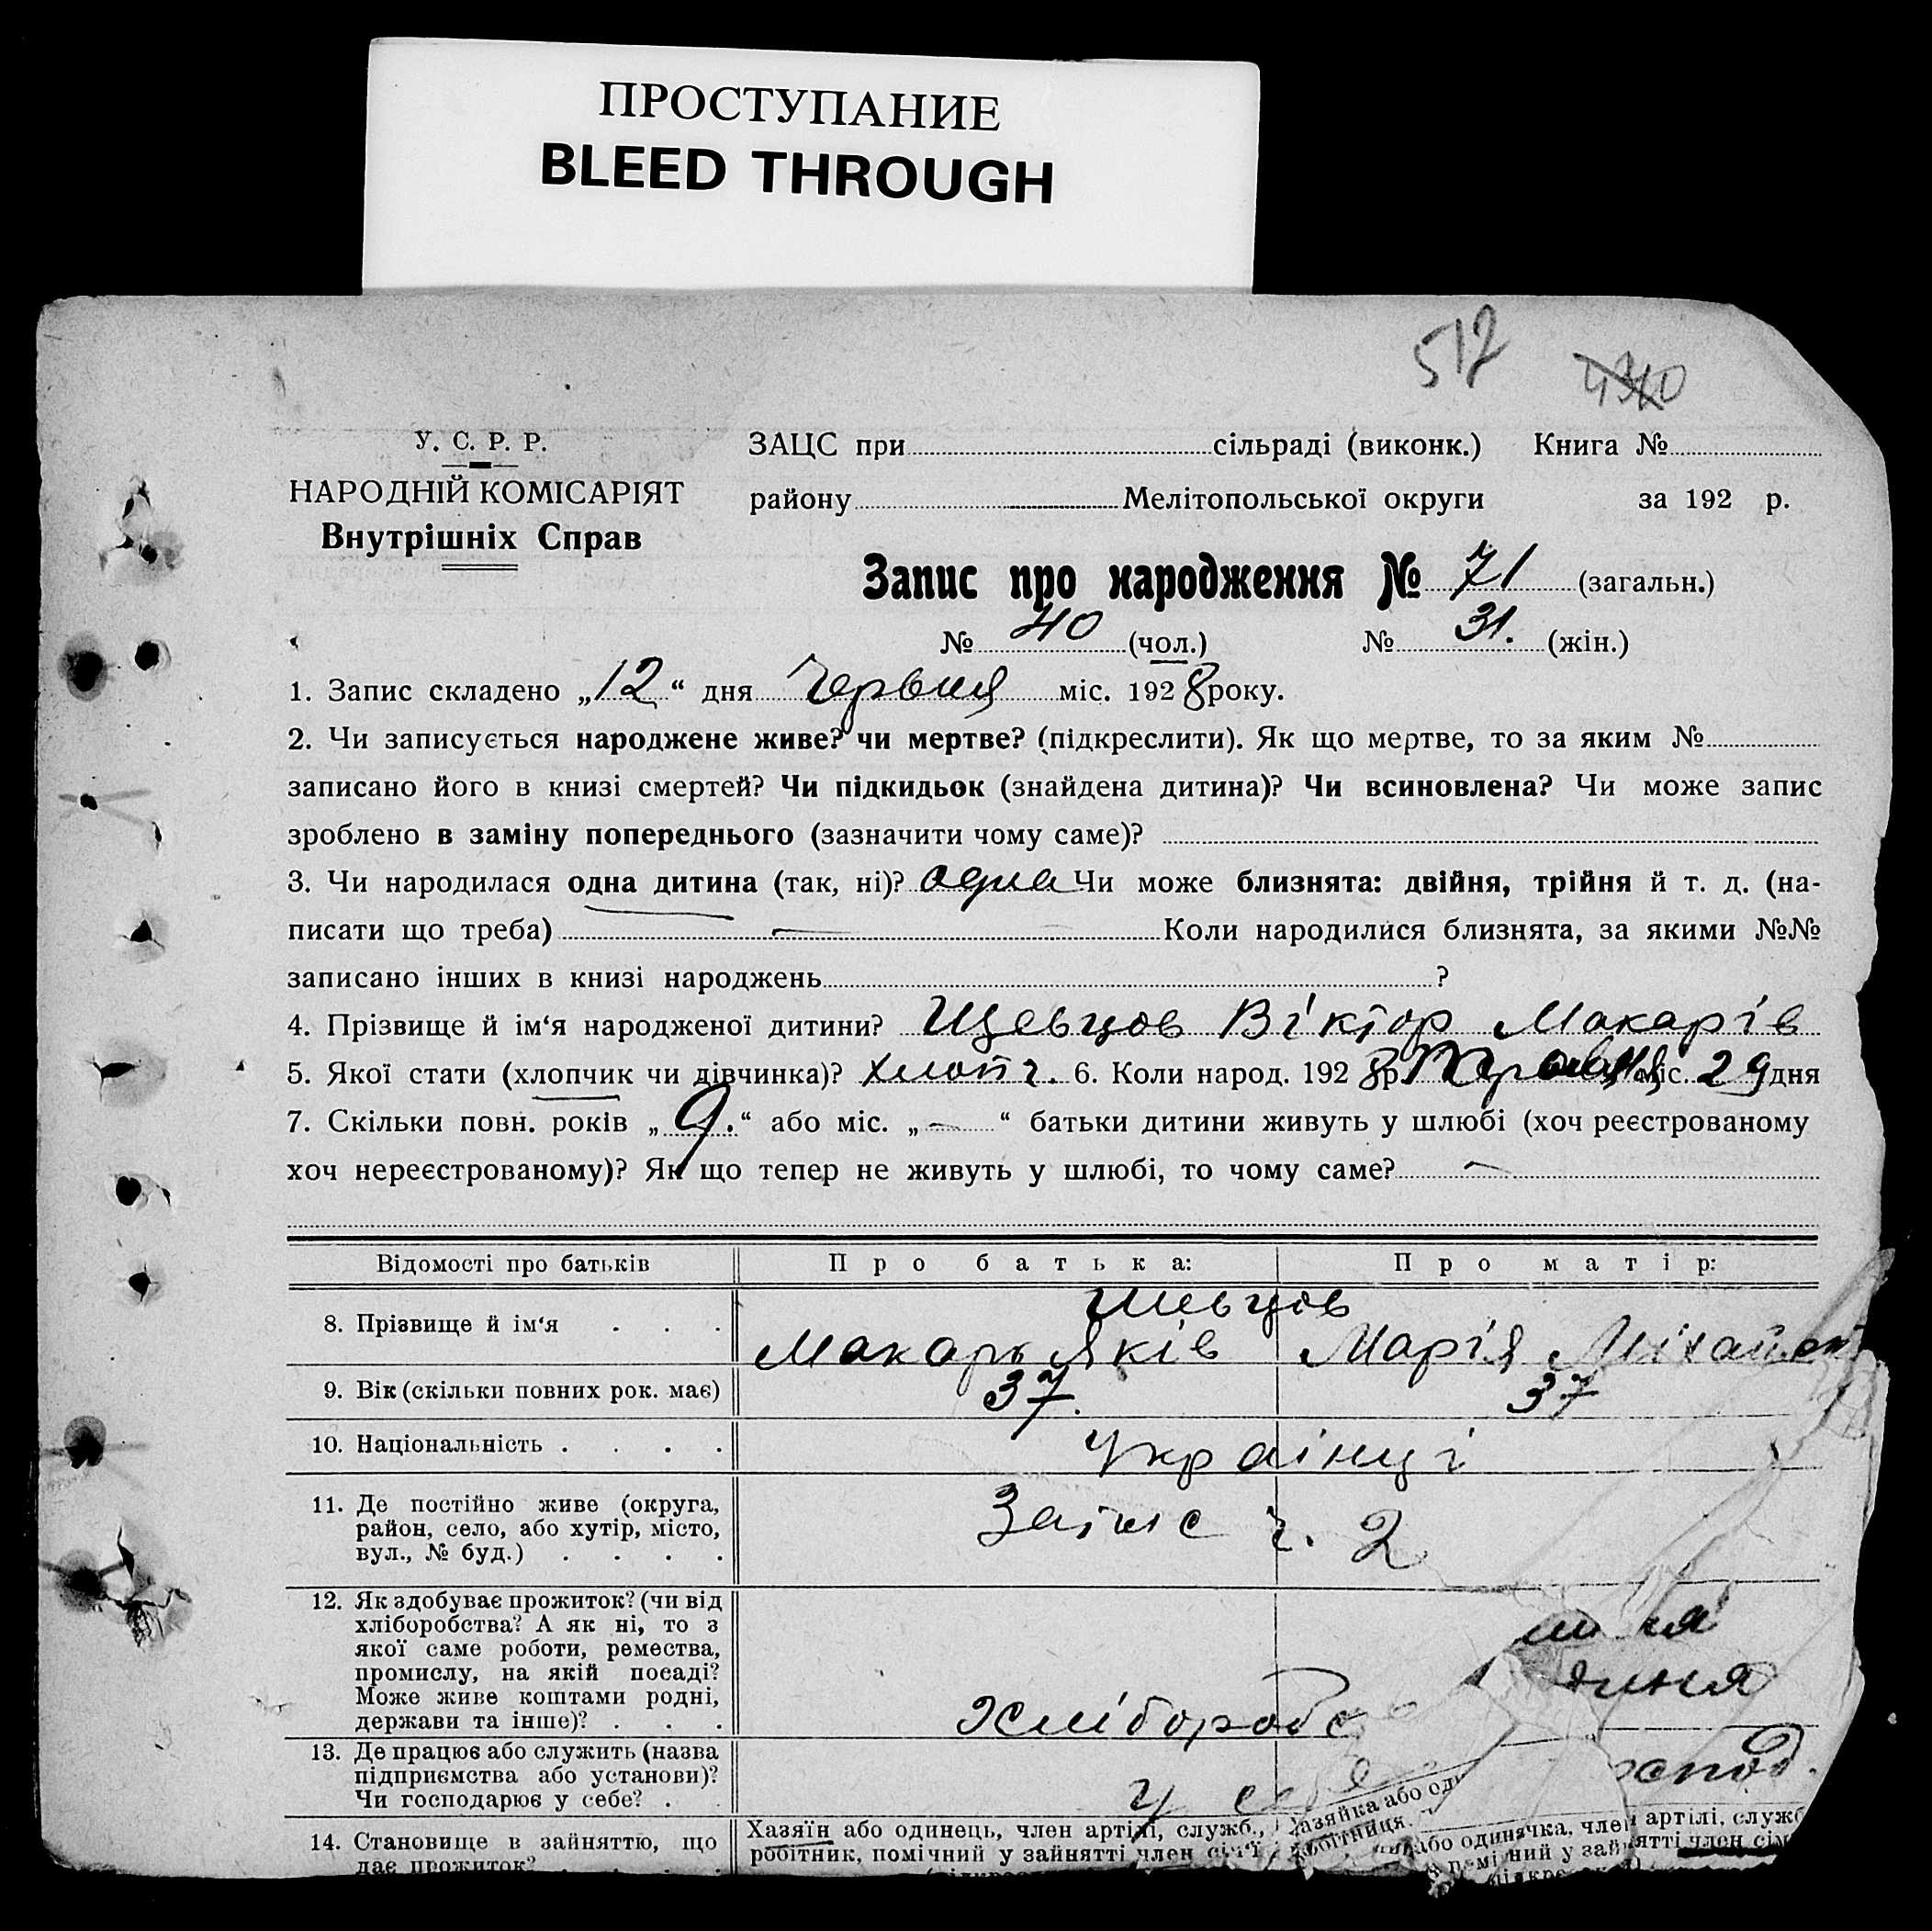 ПРОСТУПАНИЕ
BLEED THROUGH
512
У. С. Р. Р.
НАРОДНІЙ КОМІСАРІЯТ
Внутрішніх Справ
ЗАЦС при сільраді (виконк.) Книга №
району Мелітопольської округи за 192 р.
Запис про народження № 71 (загальн.)
№ 40 (чол.) № 31. (жін.)
1. Запис складено „12“ дня Червня міс. 1928 року.
2. Чи записується народжене живе? чи мертве? (підкреслити). Як що мертве, то за яким №
записано його в книзі смертей? Чи підкидьок (знайдена дитина)? Чи всиновлена? Чи може запис
зроблено в заміну попереднього (зазначити чому саме)?
3. Чи народилася одна дитина (так, ні)? одна Чи може близнята: двійня, трійня й т. д. (на-
писати що треба) — Коли народилися близнята, за якими №№
записано інших в книзі народжень ?
4. Прізвище й ім‘я народженої дитини? Шевцов Віктор Макарів
5. Якої стати (хлопчик чи дівчинка)? хлопч. 6. Коли народ. 1928 р. Травня міс. 29 дня
7. Скільки повн. років „9.“ або міс. „—“ батьки дитини живуть у шлюбі (хоч реєстрованому
хоч нереєстрованому)? Як що тепер не живуть у шлюбі, то чому саме? —
Відомості про батьків Про батька: Про матір:
Шевцов
8. Прізвище й ім‘я . . . Макарь Яків Марія
9. Вік (скільки повних рок. має) 37. 37
10. Національність . . . . Українці
11. Де постійно живе (округа,
район, село, або хутір, місто,
вул., № буд.) . . . .
Запис ч. 2
12. Як здобуває прожиток? (чи від
хліборобства? А як ні, то з
якої саме роботи, ремества,
промислу, на якій посаді?
Може живе коштами родні,
держави та інше)? . . .
Хлібороб
13. Де працює або служить (назва
підприємства або установи)?
Чи господарює у себе? .
У
14. Становище в зайняттю, що
дає прожиток?
Хазяїн або одинець, член артілі, служб.,
робітник, помічний у зайнятті член сім‘ї
азяйка або оди
робітниця.
або одиначка, член артілі, служб
помічний у зайнятті член сім